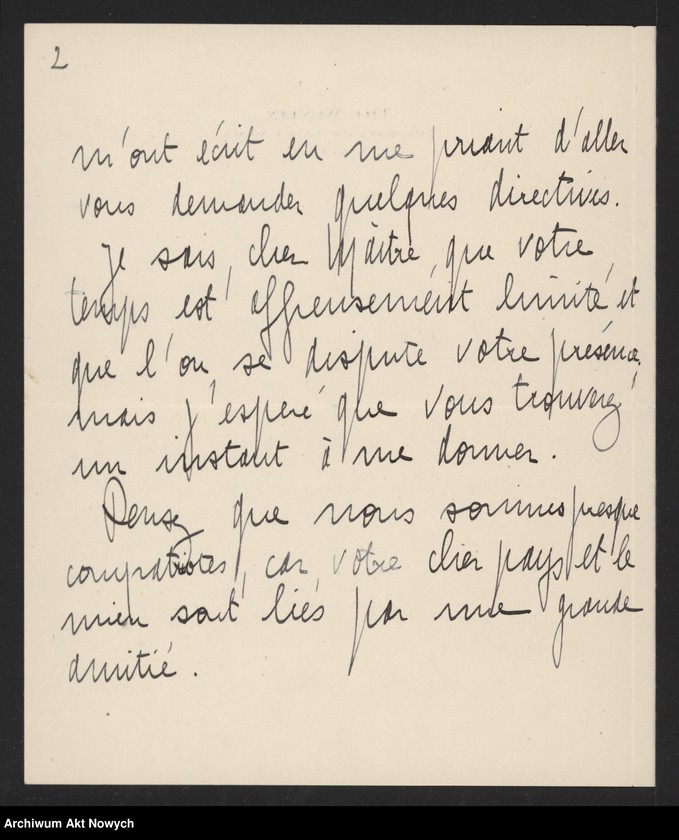 2
m'ont écrit en me priant d'aller
vous demander quelques directives.
Je sais, cher Maître, que votre
temps est affreusement limité et
que l'on se dispute votre présence,
mais j'espère que vous trouverez
un instant à me donner.
Pensez que nous sommes presque
compatriotes, car, votre cher pays et le
mien sont liés par une grande
amitié.
Archiwum Akt Nowych